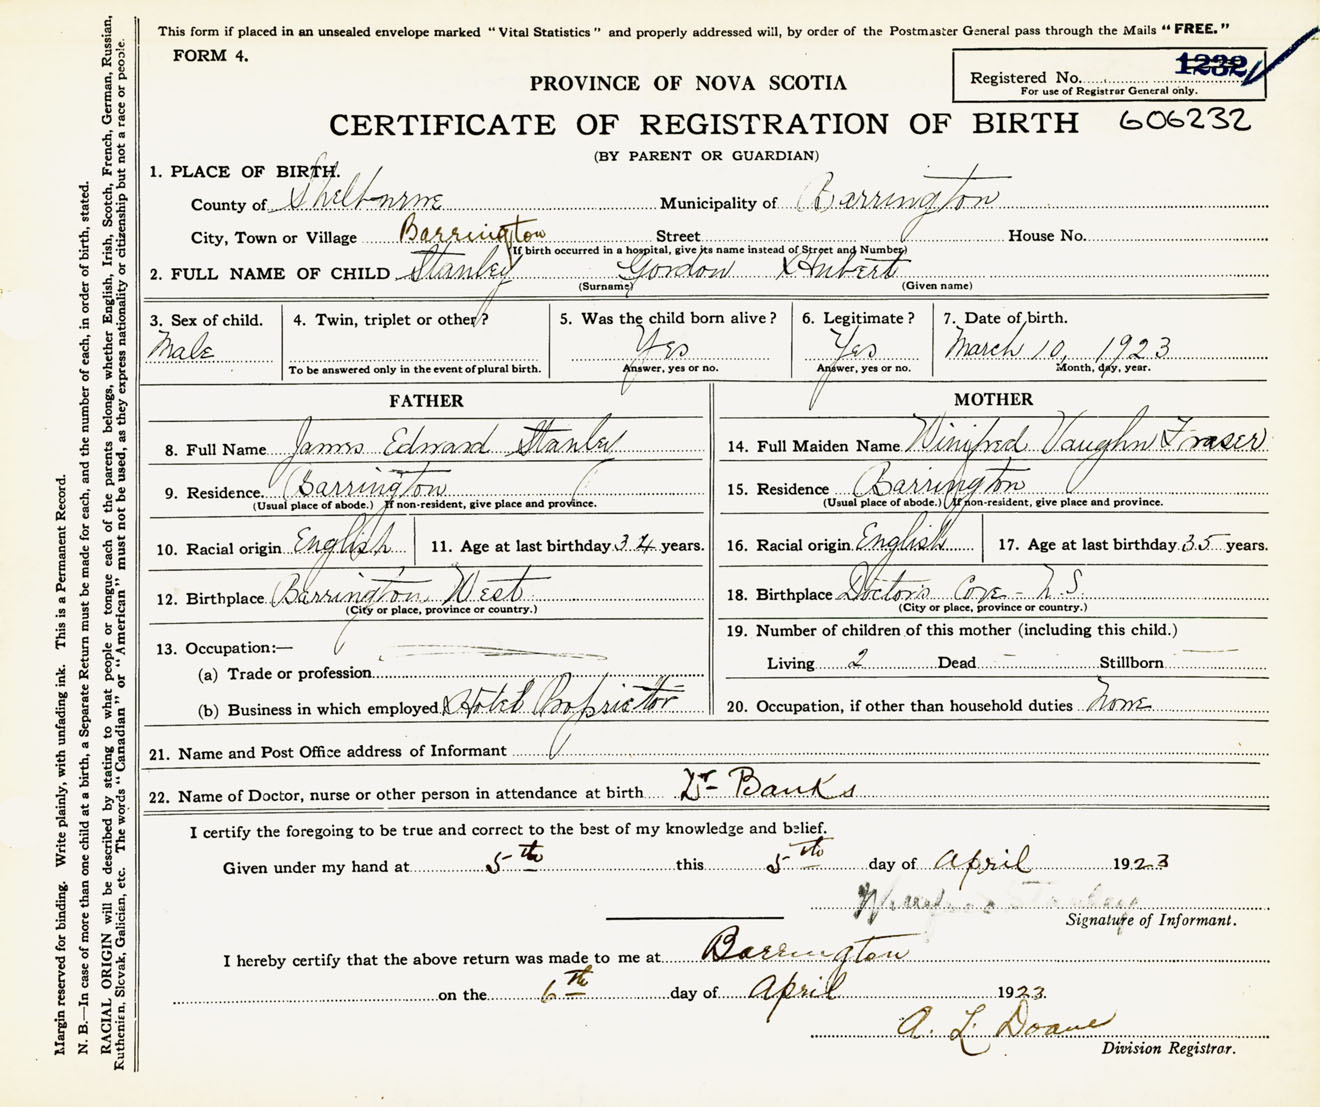 This form if placed in an unsealed envelope marked "Vital Statistics" and properly addressed will, by order of the Postmaster General pass through the Mails "FREE."
FORM 4.
Registered No. 1232
For use of Registrar General only.
PROVINCE OF NOVA SCOTIA
CERTIFICATE OF REGISTRATION OF BIRTH 606232
(BY PARENT OR GUARDIAN)
1. PLACE OF BIRTH.
County of Shelburne Municipality of Barrington
City, Town or Village Barrington Street House No.
(If birth occurred in a hospital, give its name instead of Street and Number)
2. FULL NAME OF CHILD Stanley Gordon Hubert
(Surname) (Given name)
3. Sex of child. Male
4. Twin, triplet or other?
To be answered only in the event of plural birth.
5. Was the child born alive? Yes
Answer, yes or no.
6. Legitimate? Yes
Answer, yes or no.
7. Date of birth. March 10, 1923
Month, day, year.
FATHER
8. Full Name James Edward Stanley
9. Residence. Barrington
(Usual place of abode.) If non-resident, give place and province.
10. Racial origin English 11. Age at last birthday 34 years.
12. Birthplace Barrington West
(City or place, province or country.)
13. Occupation:—
(a) Trade or profession
(b) Business in which employed Hotel Proprietor
MOTHER
14. Full Maiden Name Winifred Vaughn Fraser
15. Residence Barrington
(Usual place of abode.) If non-resident, give place and province.
16. Racial origin English 17. Age at last birthday 35 years.
18. Birthplace Doctors Cove - N.S.
(City or place, province or country.)
19. Number of children of this mother (including this child.)
Living 2 Dead — Stillborn —
20. Occupation, if other than household duties None
21. Name and Post Office address of Informant
22. Name of Doctor, nurse or other person in attendance at birth Dr Banks
I certify the foregoing to be true and correct to the best of my knowledge and belief.
Given under my hand at 5th this 5th day of April 1923
Stanley
Signature of Informant.
I hereby certify that the above return was made to me at Barrington
on the 6th day of April 1923
A. L. Doane
Division Registrar.
Margin reserved for binding. Write plainly, with unfading ink. This is a Permanent Record.
N. B.—In case of more than one child at a birth, a Separate Return must be made for each, and the number of each, in order of birth, stated.
RACIAL ORIGIN will be described by stating to what people or tongue each of the parents belongs, whether English, Irish, Scotch, French, German, Russian,
Ruthenian, Slovak, Galician, etc. The words "Canadian" or "American" must not be used, as they express nationality or citizenship but not a race or people.